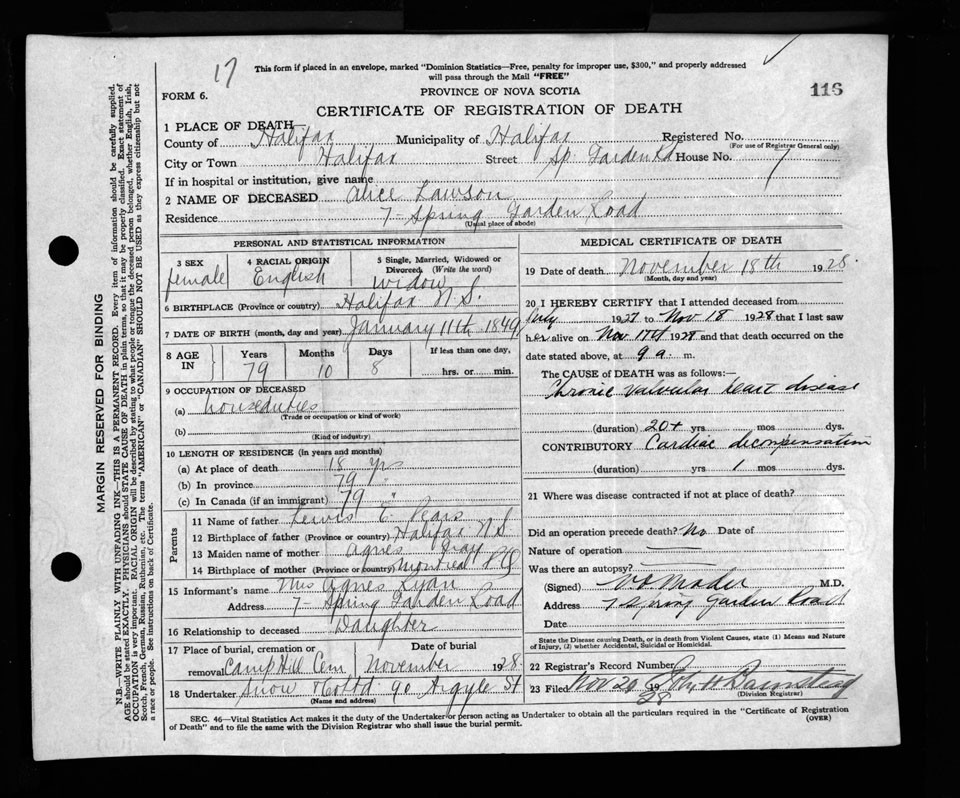 17
This form if placed in an envelope, marked "Dominion Statistics—Free, penalty for improper use, $300," and properly addressed
will pass through the Mail "FREE"
PROVINCE OF NOVA SCOTIA
116
FORM 6.
CERTIFICATE OF REGISTRATION OF DEATH
1 PLACE OF DEATH
County of Halifax Municipality of Halifax Registered No.
(For use of Registrar General only)
City or Town Halifax Street Sp. Garden Rd House No. 7
If in hospital or institution, give name
2 NAME OF DECEASED Alice Lawson
Residence 7 - Spring Garden Road
(Usual place of abode)
PERSONAL AND STATISTICAL INFORMATION
3 SEX 4 RACIAL ORIGIN 5 Single, Married, Widowed or
Divorced (Write the word)
female English widow
6 BIRTHPLACE (Province or country) Halifax N.S.
7 DATE OF BIRTH (month, day and year) January 11th 1849
8 AGE IN Years Months Days If less than one day,
79 10 8 hrs. or min.
9 OCCUPATION OF DECEASED
(a) houseduties
(Trade or occupation or kind of work)
(b)
(Kind of industry)
10 LENGTH OF RESIDENCE (in years and months)
(a) At place of death 18 yrs
(b) In province 79 "
(c) In Canada (if an immigrant) 79 "
Parents
11 Name of father Lewis E.
12 Birthplace of father (Province or country) Halifax N.S
13 Maiden name of mother Agnes Gray
14 Birthplace of mother (Province or country) Montreal P.Q
15 Informant's name Mrs Agnes Ryan
Address 7 - Spring Garden Road
16 Relationship to deceased Daughter
17 Place of burial, cremation or Date of burial
removal Camp Hill Cem November 1928.
18 Undertaker Snow & Co Ltd 90 Argyle St
(Name and address)
MEDICAL CERTIFICATE OF DEATH
19 Date of death November 18th 1928.
(Month, day and year)
20 I HEREBY CERTIFY that I attended deceased from
July 1927 to Nov 18 1928 that I last saw
her alive on Nov 1928 and that death occurred on the
date stated above, at 9 a. m.
The CAUSE of DEATH was as follows:—
Chronic valvular heart disease
(duration) 20+ yrs mos dys.
CONTRIBUTORY Cardiac decompensation
(duration) yrs 1 mos dys.
21 Where was disease contracted if not at place of death?
Did an operation precede death? No Date of
Nature of operation
Was there an autopsy?
(Signed) Mader M.D.
Address 7 Spring Garden Road
Date
State the Disease causing Death, or in death from Violent Causes, state (1) Means and Nature
of Injury, (2) whether Accidental, Suicidal or Homicidal.
22 Registrar's Record Number
23 Filed Nov 20 1928 John H Barnstead
(Division Registrar)
SEC. 46—Vital Statistics Act makes it the duty of the Undertaker or person acting as Undertaker to obtain all the particulars required in the "Certificate of Registration
of Death" and to file the same with the Division Registrar who shall issue the burial permit.
(OVER)
MARGIN RESERVED FOR BINDING
N.B.—WRITE PLAINLY WITH UNFADING INK—THIS IS A PERMANENT RECORD. Every item of information should be carefully supplied.
AGE should be stated EXACTLY. PHYSICIANS should STATE CAUSE OF DEATH in plain terms, so that it may be properly classified. Exact statement of
OCCUPATION is very important. RACIAL ORIGIN will be described by stating to what people or tongue the deceased person belonged, whether English, Irish,
Scotch, French, German, Russian, Ruthenian, etc. The terms "AMERICAN" or "CANADIAN" SHOULD NOT BE USED as they express citizenship but not
a race or people. See instructions on back of Certificate.